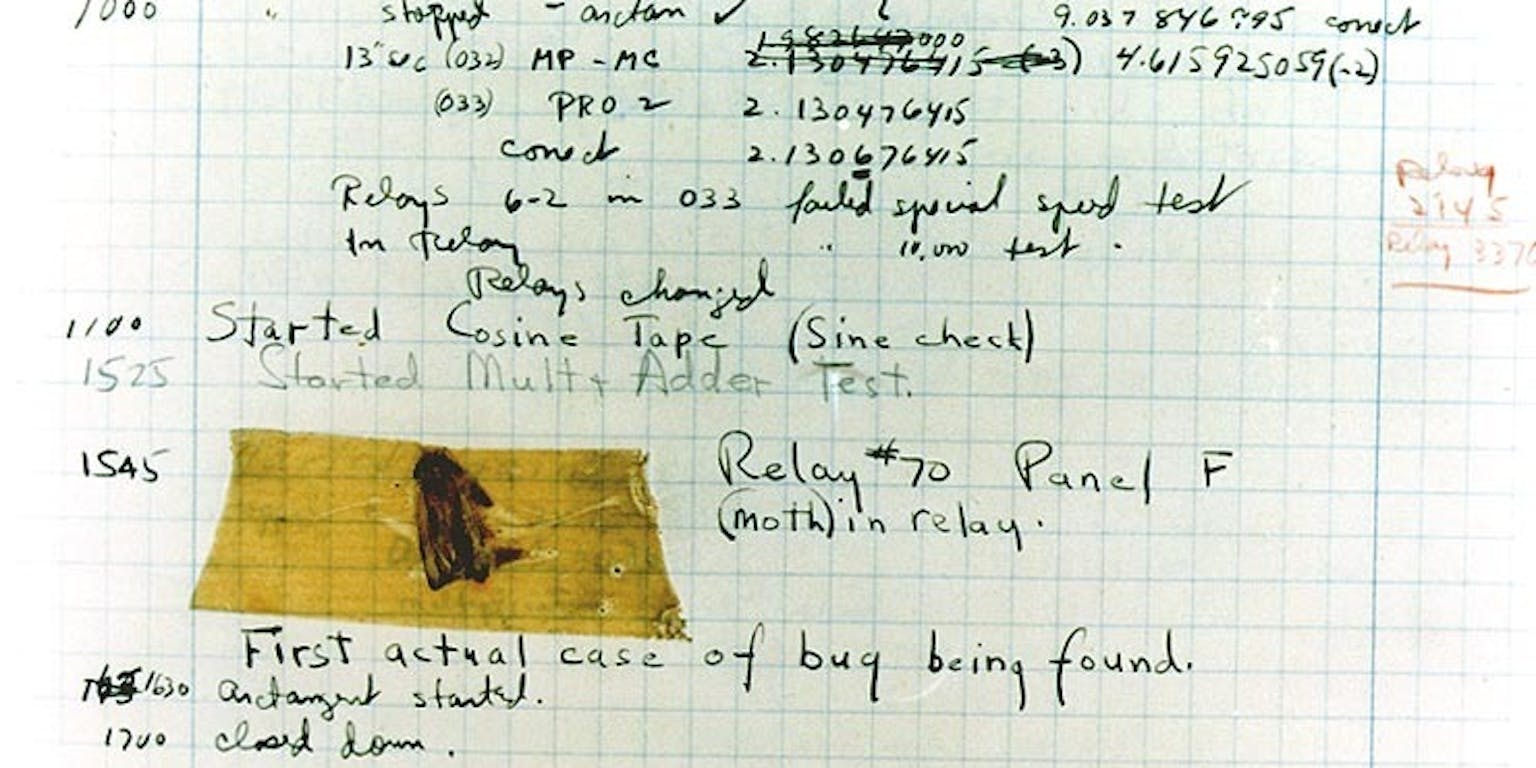 1000 " stopped - arctan ✓ 9.037 846 995 correct
13" uc (032) MP - MC 1.982647000 2.130476415 (-3) 4.615925059(-2)
(033) PRO 2 2.130476415
correct 2.130676415
Relays 6-2 in 033 failed special speed test
In Relay " 10,000 test .
Relays changed
Relay
2145
Relay 3370
1100 Started Cosine Tape (Sine check)
1525 Started Mult + Adder Test.
1545 Relay #70 Panel F
(moth) in relay.
First actual case of bug being found.
1630 arctangent started.
1700 closed down.